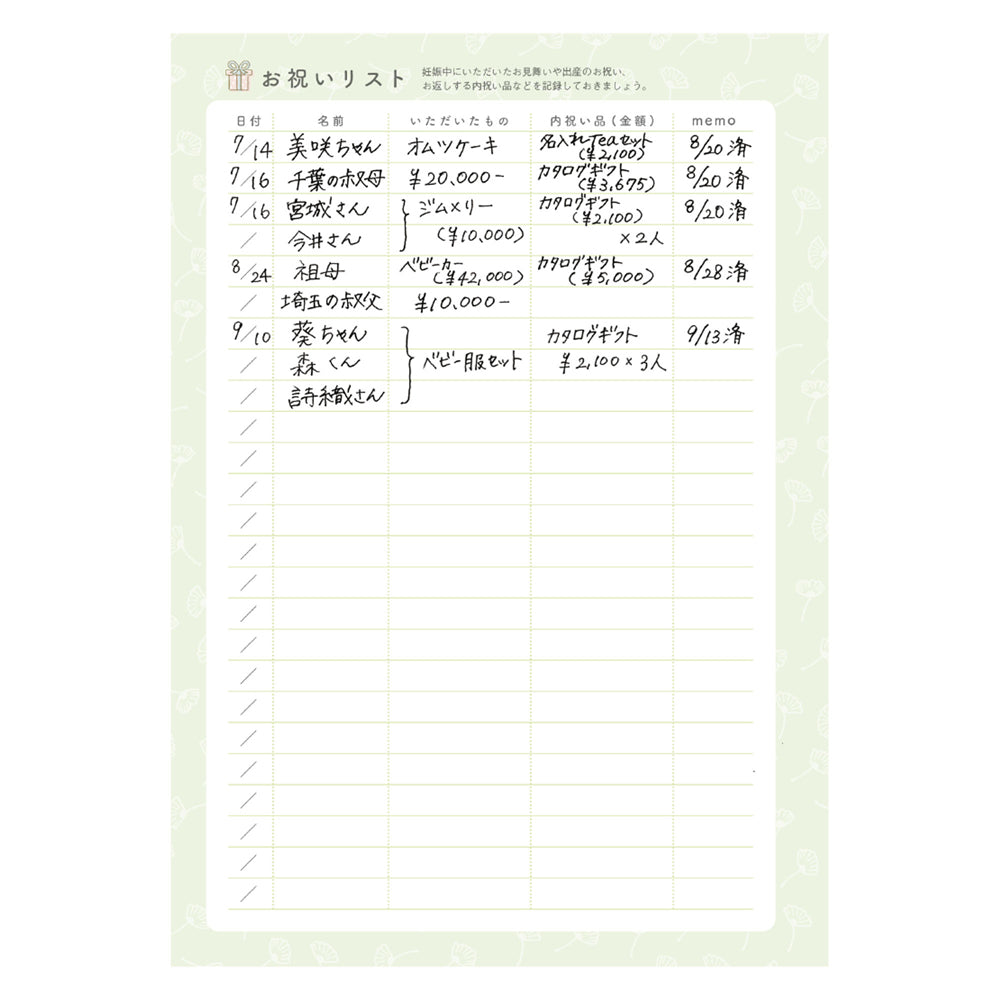 お祝いリスト
妊娠中にいただいたお見舞いや出産のお祝い、
お返しする内祝い品などを記録しておきましょう。
日付 名前 いただいたもの 内祝い品(金額) memo
7/14 美咲ちゃん オムツケーキ 名入れTeaセット (¥2,100) 8/20 済
7/16 千葉の叔母 ¥20,000- カタログギフト (¥3,675) 8/20 済
7/16 宮城さん ジムメリー カタログギフト (¥2,100) 8/20 済
/ 今井さん (¥10,000) ×2人
8/24 祖母 ベビーカー (¥42,000) カタログギフト (¥5,000) 8/28 済
/ 埼玉の叔父 ¥10,000-
9/10 葵ちゃん カタログギフト 9/13 済
/ 森くん ベビー服セット ¥2,100×3人
/ 詩織さん
/
/
/
/
/
/
/
/
/
/
/
/
/
/
/
/